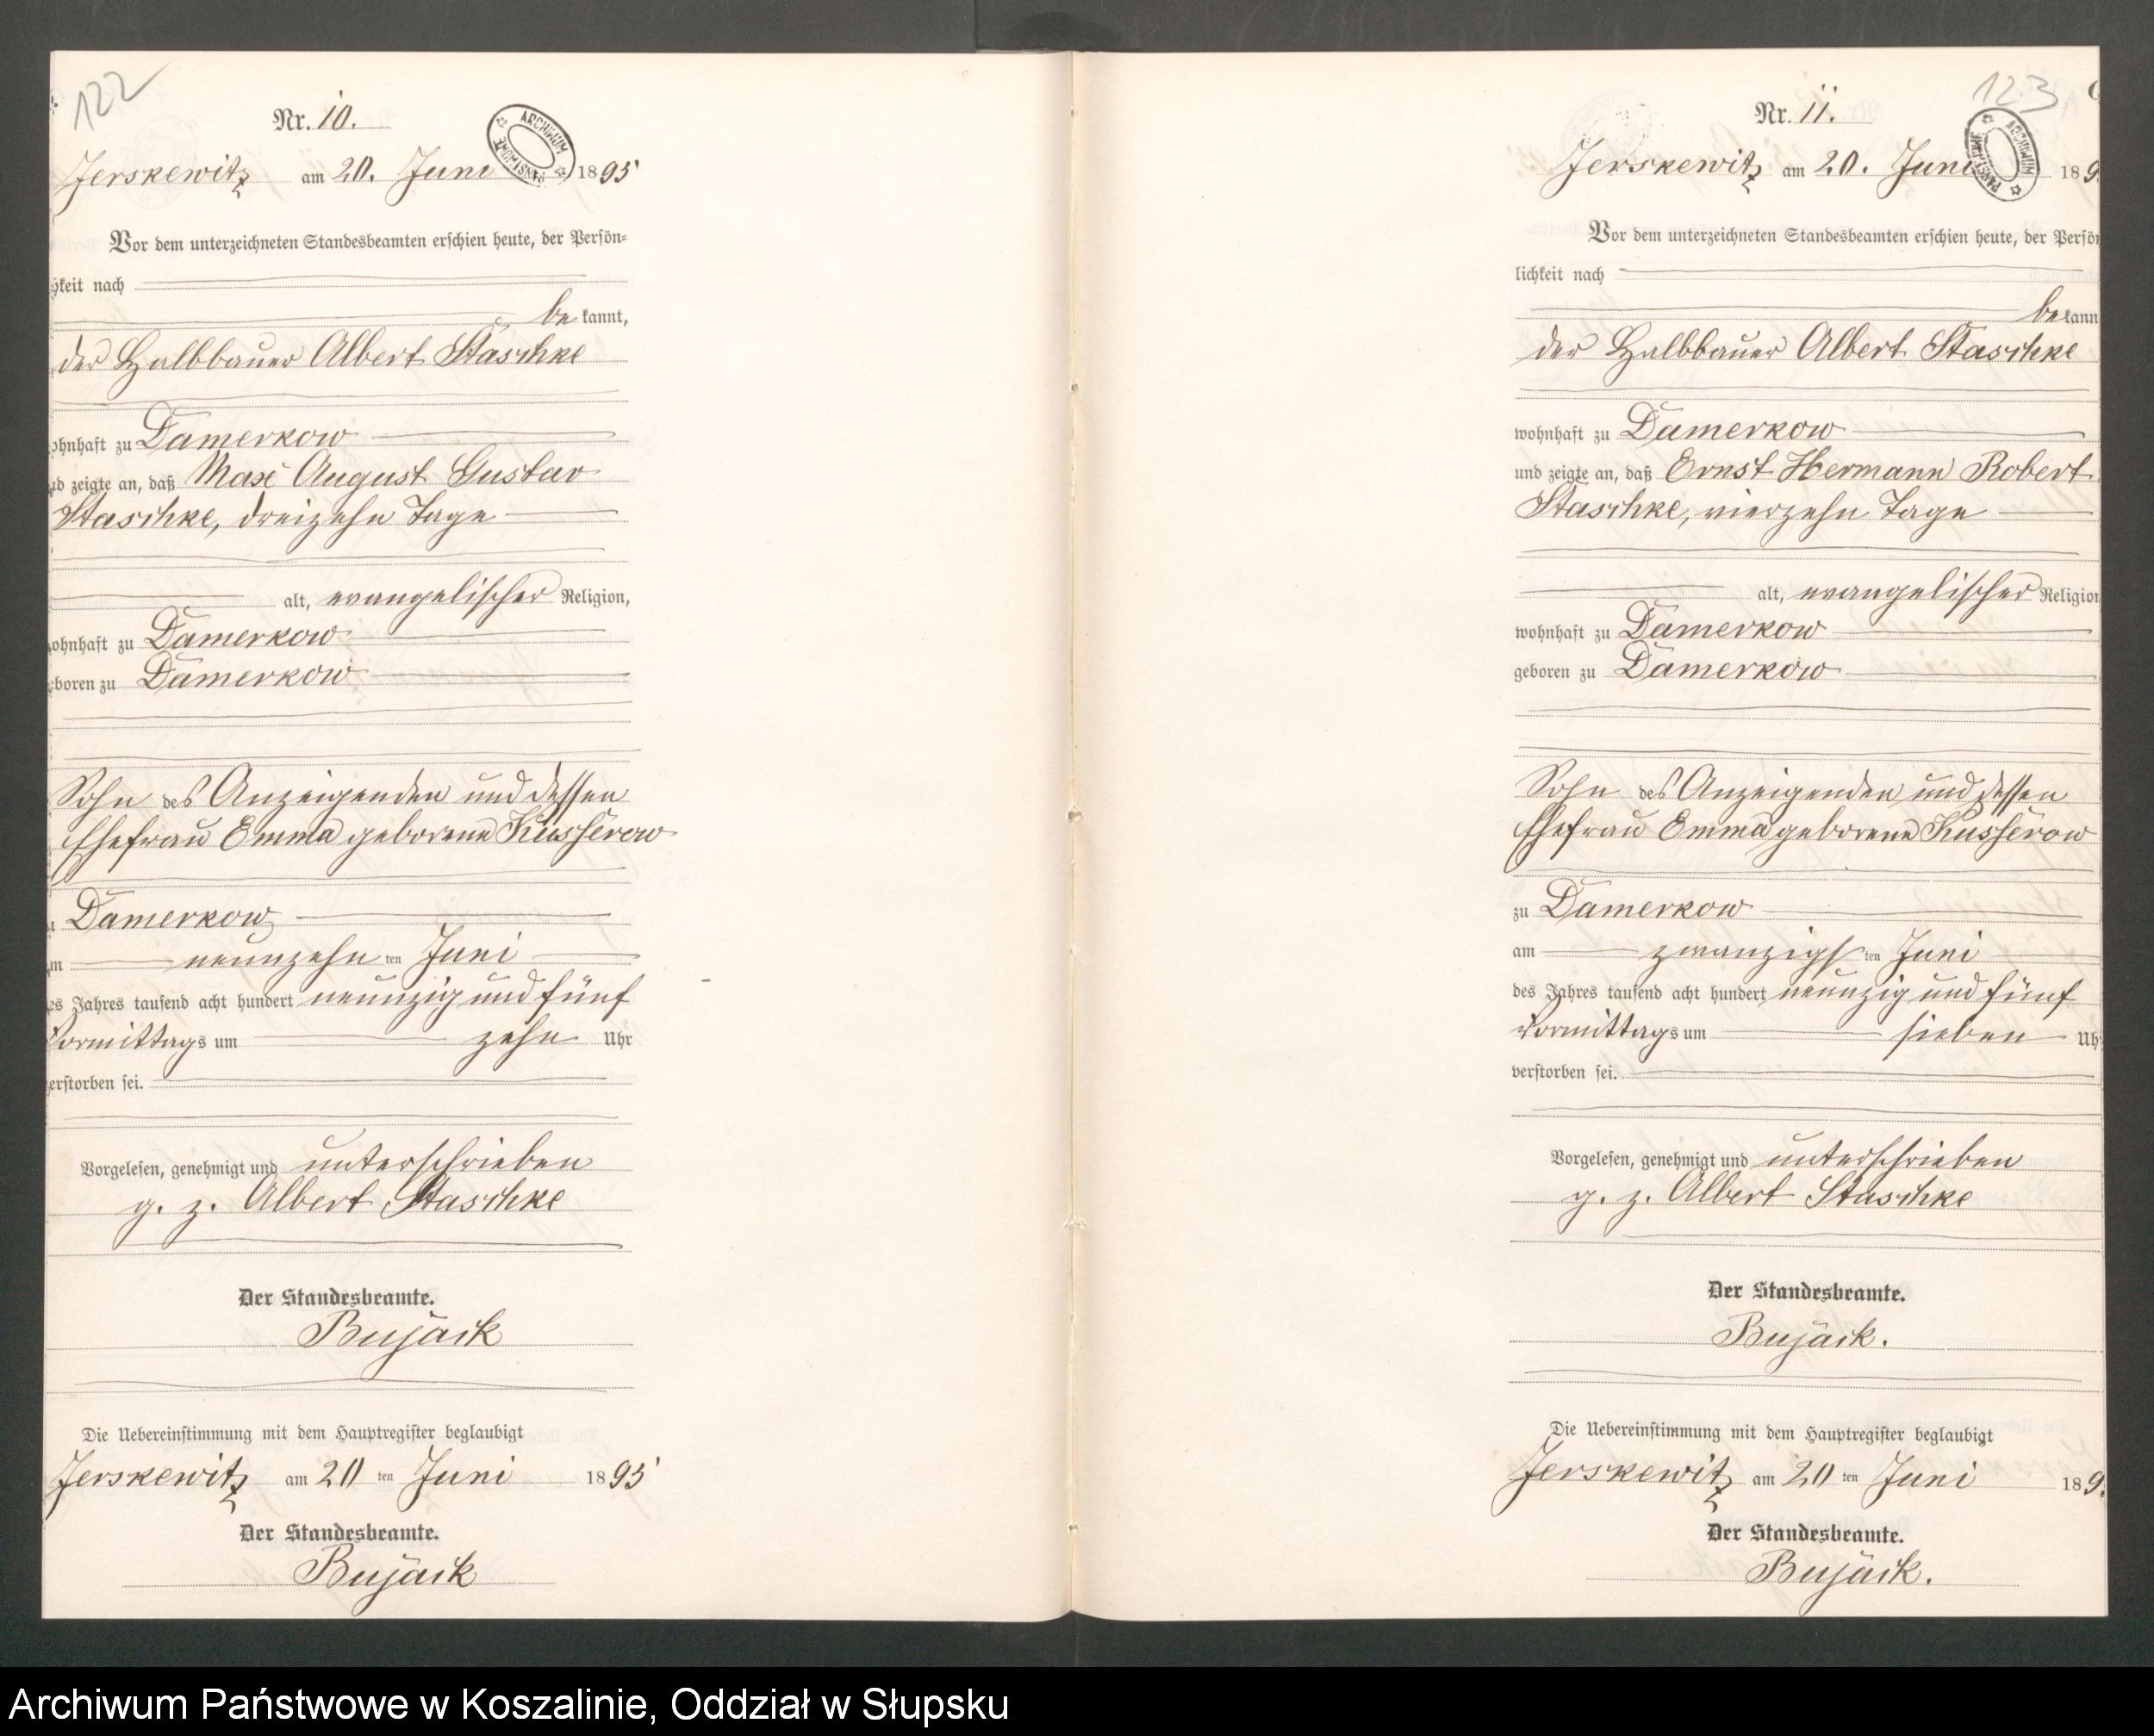 122
Nr. 10.
ARCHIWUM PAŃSTWOWE
Jerskewitz am 20. Juni 1895
Vor dem unterzeichneten Standesbeamten erschien heute, der Persön=
hkeit nach
be kannt,
der Halbbauer Albert Staschke
ohnhaft zu Damerkow
nd zeigte an, daß Max August Gustav
Staschke, dreizehn Tage
alt, evangelischer Religion,
ohnhaft zu Damerkow
boren zu Damerkow
Sohn des Anzeigenden und dessen
Ehefrau Emma geborene Kusserow
u Damerkow
m neunzehn ten Juni
es Jahres tausend acht hundert neunzig und fünf
Vormittags um zehn Uhr
erstorben sei.
Vorgelesen, genehmigt und unterschrieben
g. z. Albert Staschke
Der Standesbeamte.
Bujack
Die Uebereinstimmung mit dem Hauptregister beglaubigt
Jerskewitz am 20 ten Juni 1895
Der Standesbeamte.
Bujack
123
Nr. 11.
ARCHIWUM PAŃSTWOWE
Jerskewitz am 20. Juni 189
Vor dem unterzeichneten Standesbeamten erschien heute, der Persön
lichkeit nach
be kann
der Halbbauer Albert Staschke
wohnhaft zu Damerkow
und zeigte an, daß Ernst Hermann Robert
Staschke, vierzehn Tage
alt, evangelischer Religion
wohnhaft zu Damerkow
geboren zu Damerkow
Sohn des Anzeigenden und dessen
Ehefrau Emma geborene Kusserow
zu Damerkow
am zwanzigs ten Juni
des Jahres tausend acht hundert neunzig und fünf
Vormittags um sieben Uh
verstorben sei.
Vorgelesen, genehmigt und unterschrieben
g. z. Albert Staschke
Der Standesbeamte.
Bujack.
Die Uebereinstimmung mit dem Hauptregister beglaubigt
Jerskewitz am 20 ten Juni 189
Der Standesbeamte.
Bujack.
Archiwum Państwowe w Koszalinie, Oddział w Słupsku